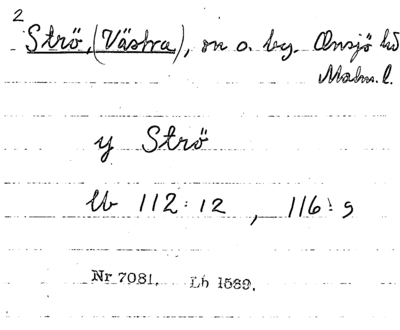 2
Strö, (Västra), sn o. by. Onsjö hd
Malm. l.
y Strö
Lb 112:12, 116:9
Nr 7081. Lh 1589.